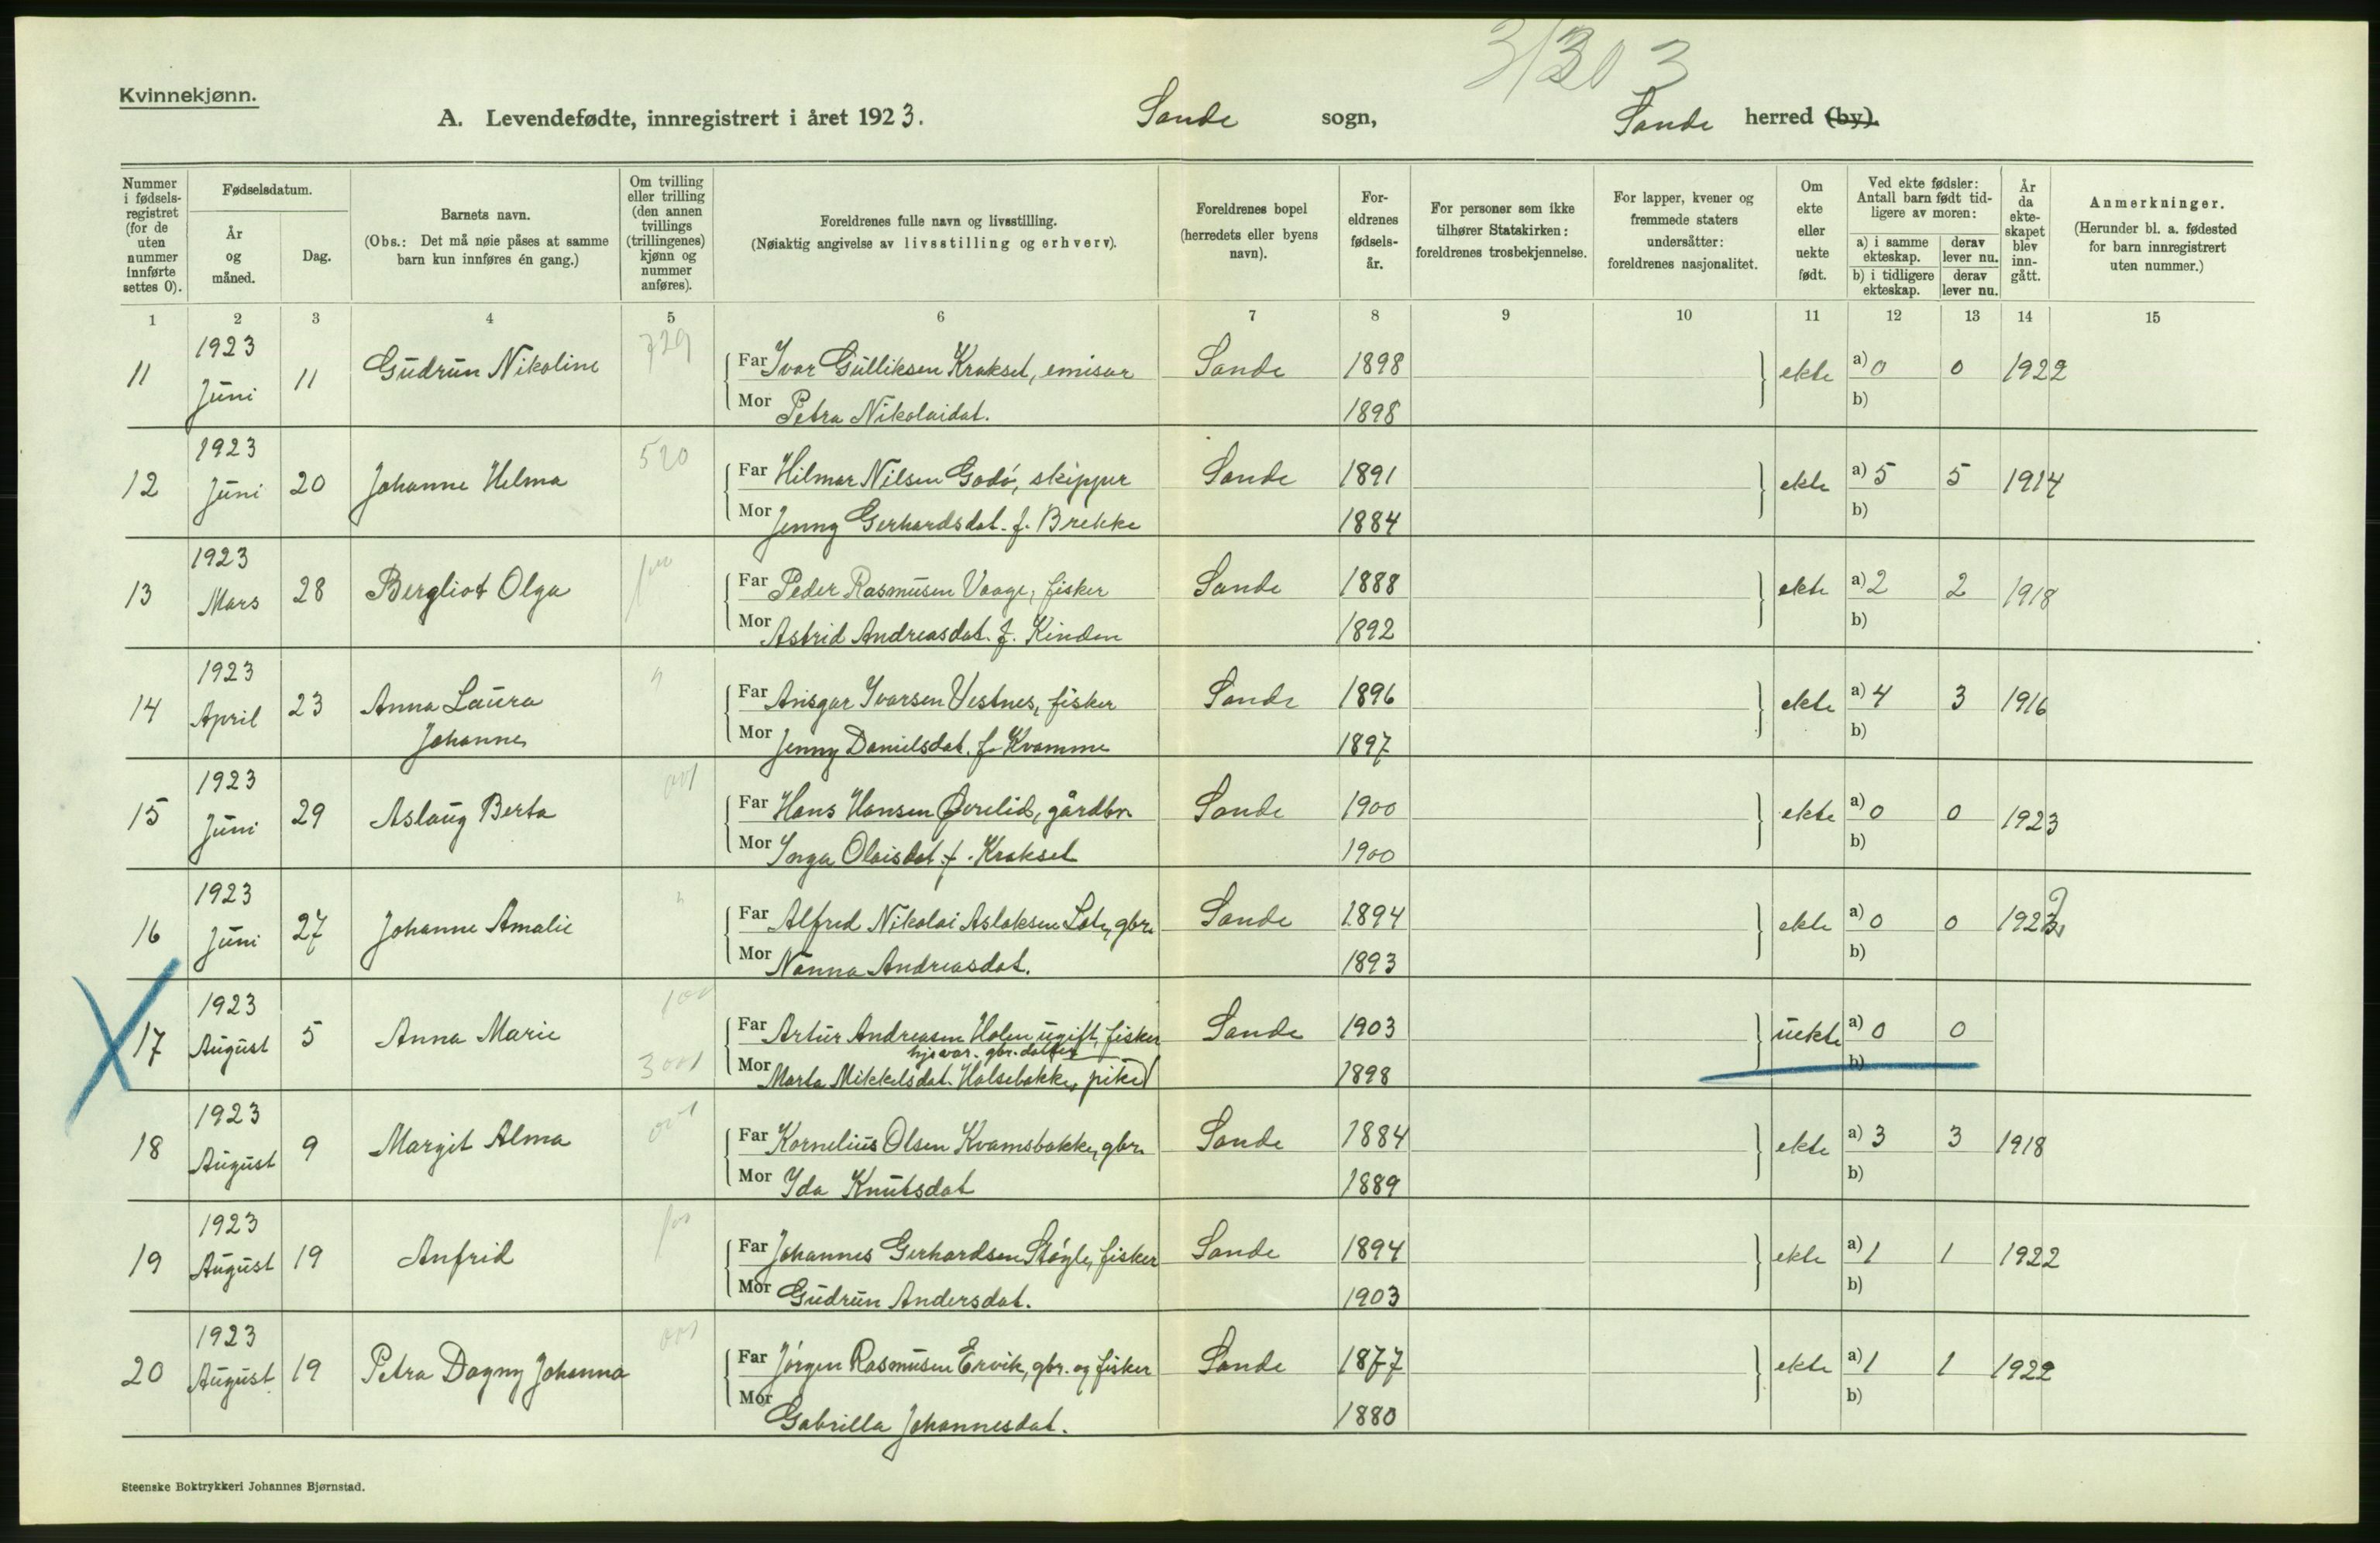 Kvinnekjønn.
A. Levendefødte, innregistrert i året 1923.
Sande sogn,
Sande herred (by).
Nummer i fødselsregistret (for de uten nummer innførte settes 0).
Fødselsdatum.
År og måned.
Dag.
Barnets navn.
(Obs.: Det må nøie påses at samme barn kun innføres én gang.)
Om tvilling eller trilling (den annen tvillings (trillingenes) kjønn og nummer anføres).
Foreldrenes fulle navn og livsstilling.
(Nøiaktig angivelse av livsstilling og erhverv).
Foreldrenes bopel (herredets eller byens navn).
Foreldrenes fødselsår.
For personer som ikke tilhører Statskirken: foreldrenes trosbekjennelse.
For lapper, kvener og fremmede staters undersåtter: foreldrenes nasjonalitet.
Om ekte eller uekte født.
Ved ekte fødsler: Antall barn født tidligere av moren:
a) i samme ekteskap.
derav lever nu.
b) i tidligere ekteskap.
derav lever nu.
År da ekteskapet blev inngått.
Anmerkninger.
(Herunder bl. a. fødested for barn innregistrert uten nummer.)
1 2 3 4 5 6 7 8 9 10 11 12 13 14 15
11 1923 Juni 11 Gudrun Nikoline 729
Far Ivar Gulliksen Krakset, emisær Sande 1898 ekte a) 0 0 1922
Mor Petra Nikolaidat. 1898 b)
12 1923 Juni 20 Johanne Helma 520
Far Hilmar Nilsen Godø, skipper Sande 1891 ekte a) 5 5 1914
Mor Jenny Gerhardsdat. f. Brekke 1884 b)
13 1923 Mars 28 Bergliot Olga
Far Peder Rasmusen Vaage, fisker Sande 1888 ekte a) 2 2 1918
Mor Astrid Andreasdat. f. Kinden 1892 b)
14 1923 April 23 Anna Laura Johanne
Far Ansgar Ivarsen Vestnes, fisker Sande 1896 ekte a) 4 3 1916
Mor Jenny Danielsdat. f. Kvamme 1897 b)
15 1923 Juni 29 Aslaug Berta
Far Hans Hansen Øvrelid, gårdbr. Sande 1900 ekte a) 0 0 1923
Mor Inga Olaisdat f. Krakset 1900 b)
16 1923 Juni 27 Johanne Amalie
Far Alfred Nikolai Aslaksen Lote, gbr. Sande 1894 ekte a) 0 0 1922
Mor Nanna Andreasdat. 1893 b)
17 1923 August 5 Anna Marie
Far Artur Andreasen Holen ugift, fisker Sande 1903 uekte a) 0 0
hjevær. gbr. datter
Mor Marta Mikkelsdat. Halsebakke, pike 1898 b)
18 1923 August 9 Margit Alma
Far Kornelius Olsen Kvamsbakke, gbr. Sande 1884 ekte a) 3 3 1918
Mor Ida Knutsdat 1889 b)
19 1923 August 19 Anfrid
Far Johannes Gerhardsen Støyle, fisker Sande 1894 ekte a) 1 1 1922
Mor Gudrun Andersdat. 1903 b)
20 1923 August 19 Petra Dagny Johanna
Far Jörgen Rasmusen Ervik, gbr. og fisker Sande 1877 ekte a) 1 1 1922
Mor Gabrilla Johannesdat. 1880 b)
Steenske Boktrykkeri Johannes Bjørnstad.